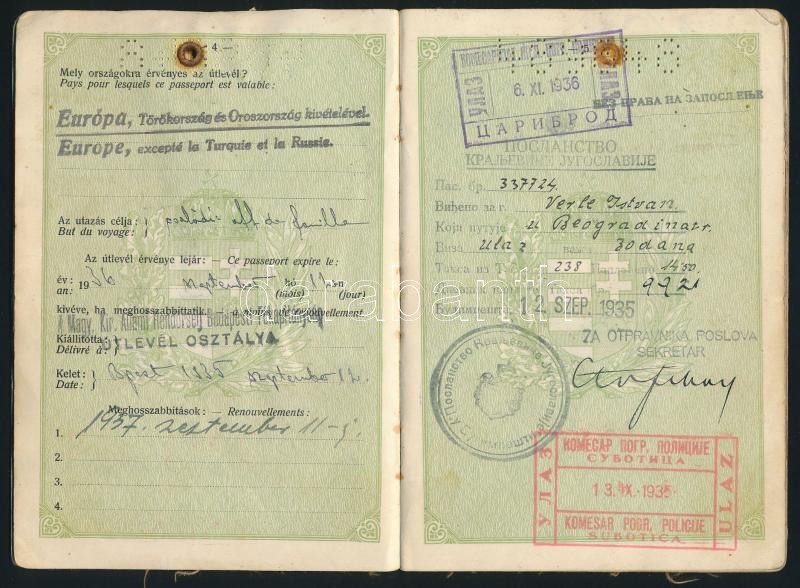 — 4 —
Mely országokra érvényes az útlevél?
Pays pour lesquels ce passeport est valable:
Európa, Törökország és Oroszország kivételével.
Europe, excepté la Turquie et la Russie.
Az utazás célja:
But du voyage:
családi aff de famille
Az útlevél érvénye lejár: — Ce passeport expire le:
év: 1936 szeptember hó 11-én
an: (mois) (jour)
kivéve, ha meghosszabbittatik — à moins de renouvellement
A Magy. Kir. Állami Rendőrség Budapesti Főkapitánysága
ÚTLEVÉL OSZTÁLYA
Kiállította:
Délivré à:
Kelet: Bpest 1935 szeptember 12.
Date:
Meghosszabbitások: — Renouvellements:
1. 1937. szeptember 11-ig
2.
3.
4.
УЛАЗ
6. XI. 1936
ЦАРИБРОД
БЕЗ ПРАВА НА ЗАПОСЛЕЊЕ
ПОСЛАНСТВО
КРАЉЕВИНЕ ЈУГОСЛАВИЈЕ
Пас. бр. 337724.
Виђено за г. Verle Istvan.
Који путује u Beograd i natr.
Виза Ulaz важи 30 dana
Такса из Т. Б. 238 Наплаћено 14.50
Дневник примљ. такса бр. 9921
Будимпешта, 12. SZEP. 1935
ZA OTPRAVNIKA POSLOVA
SEKRETAR
Посланство Краљевине Југославије
УЛАЗ
КОМЕСАР ПОГР. ПОЛИЦИЈЕ
СУБОТИЦА
13. IX. 1935
KOMESAR POGR. POLICIJE
SUBOTICA
ULAZ
darabanth